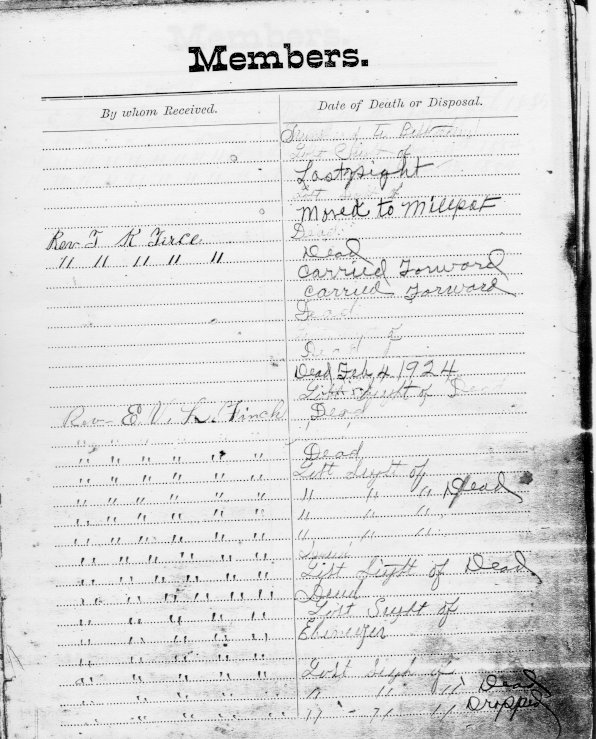 Members.
By whom Received. Date of Death or Disposal.
Lost Sight of
Lost sight
Moved to Millport
Dead
Rev T R
" " " " " Dead
Carried Forward
Carried Forward
Dead
Dead
Dead Feb 4 1924
Lost Sight of Dead
Rev E. V. L. Finch Dead
" " " " " "
" " " " " " Dead
" " " " " " Lost Sight of
" " " " " " " " " Dead
" " " " " " " " "
" " " " " " " " "
" " " " " "
" " " " " " Lost Sight of Dead
" " " " " " Dead
" " " " " " Lost Sight of
" " " " " " Ebenezer
" " " " " "
" " " " " " Lost Sigh of
" " " " " " " " " Dead
" " " " " " " " Dropped